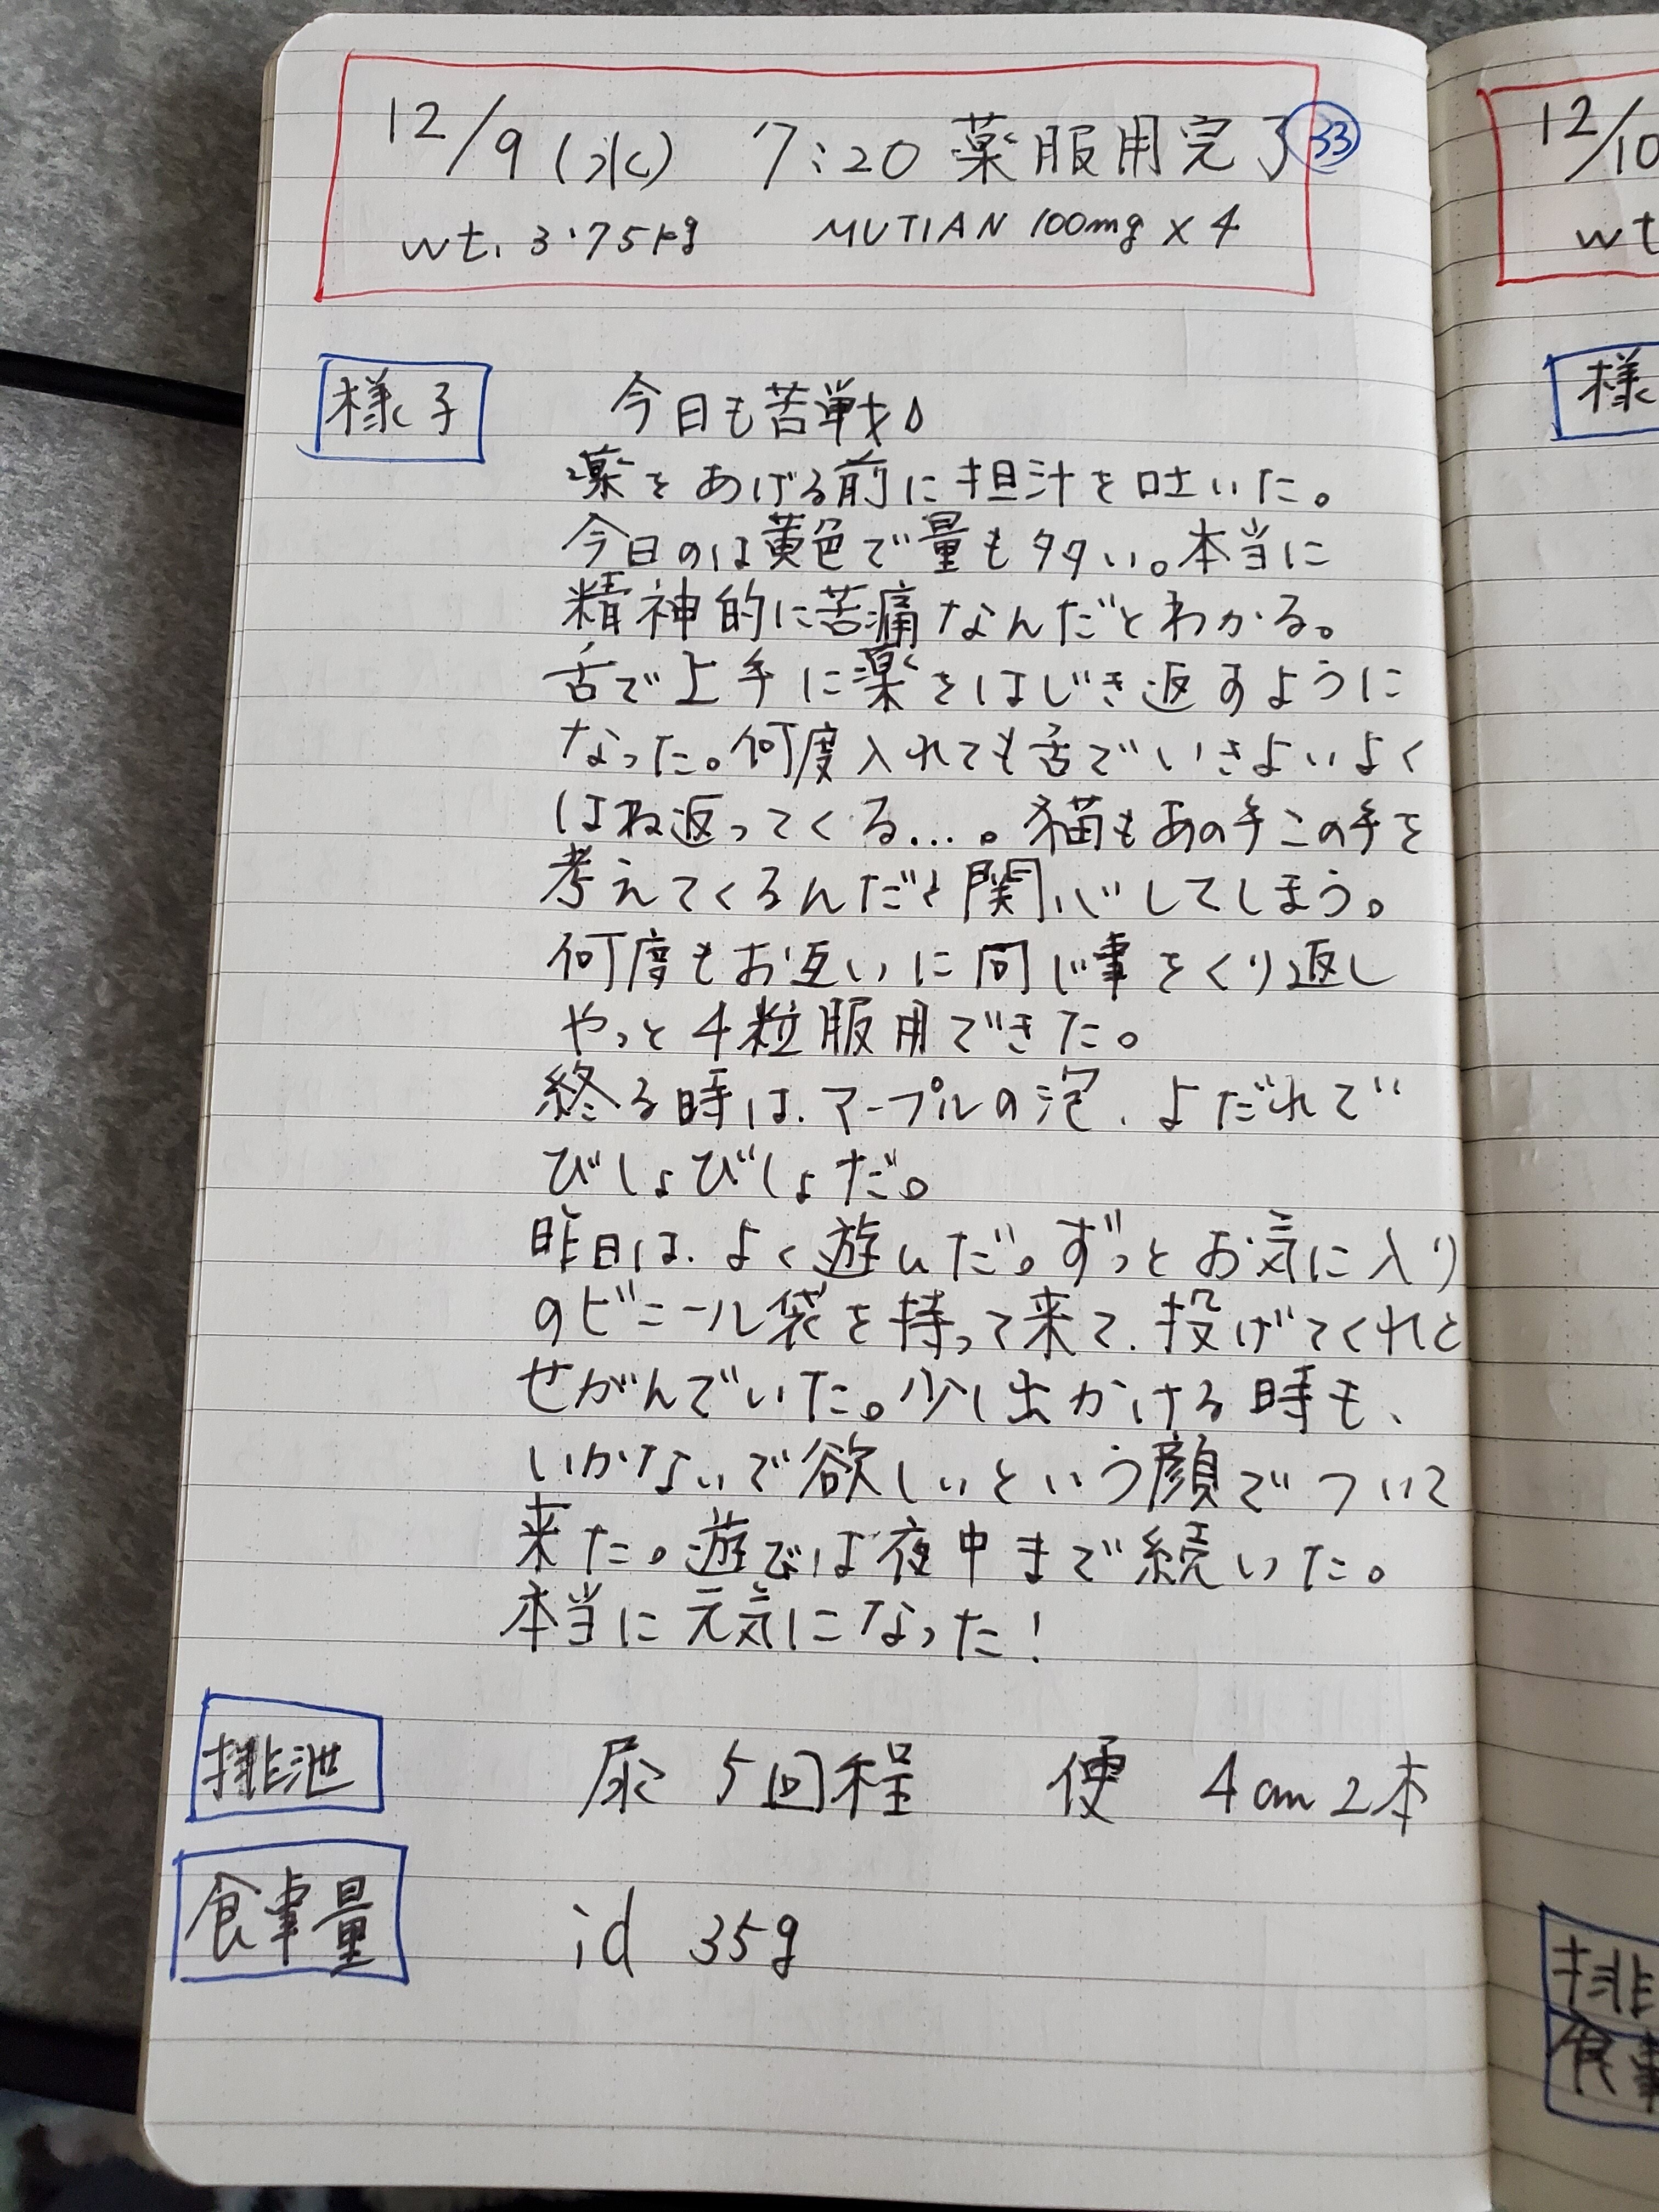 12/9(水) 7:20 薬服用完了 33
wt. 3.75kg MUTIAN 100mg×4
様子
今日も苦戦。
薬をあげる前に担汁を吐いた。
今日のは黄色で量も多い。本当に
精神的に苦痛なんだとわかる。
舌で上手に薬をはじき返すように
なった。何度入れても舌でいきよいよく
はね返ってくる…。猫もあの手この手を
考えてくるんだと関心してしまう。
何度もお互いに同じ事をくり返し
やっと4粒服用できた。
終る時は、マープルの泡、よだれで
びしょびしょだ。
昨日は、よく遊んだ。ずっとお気に入り
のビニール袋を持って来て、投げてくれと
せがんでいた。少し出かける時も、
いかないで欲しいという顔でついて
来た。遊びは夜中まで続いた。
本当に元気になった!
排泄 尿 5回程 便 4cm 2本
食事量 id 35g
12/10
wt
様
排
食事